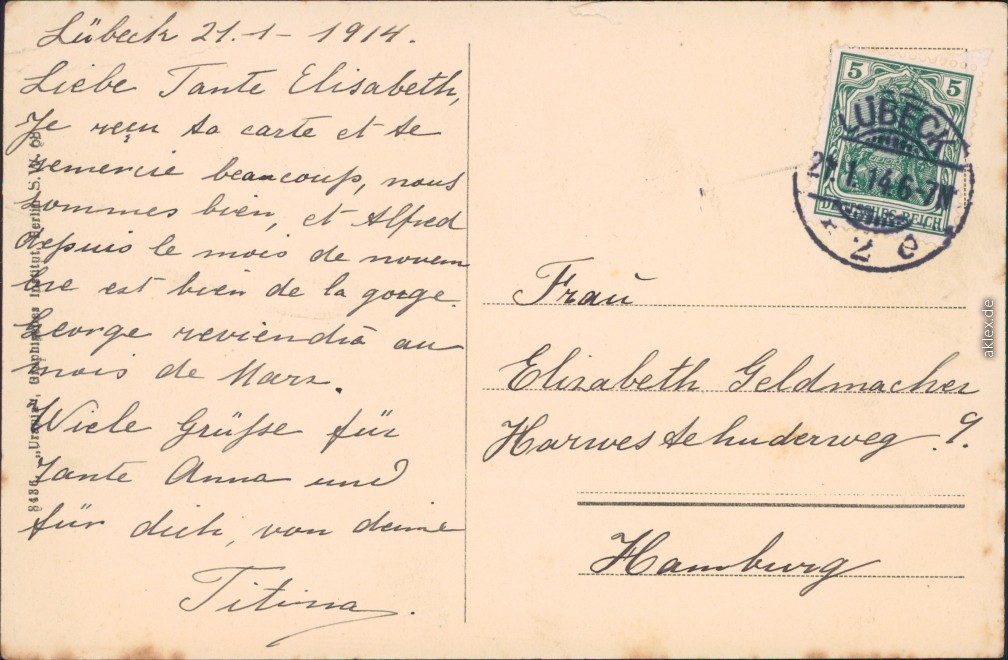 Lübeck 21.-1- 1914.
Liebe Tante Elisabeth,
Je reçu ta carte et te
remercie beaucoup, nous
sommes bien, et Alfred
depuis le mois de novem
bre est bien de la gorge.
George reviendra au
mois de Mars.
Viele Grüsse für
Tante Anna und
für dich, von deine
Titina.
8486. „Urania", Graphisches Institut, Berlin S. W. 68
5 5
DEUTSCHES REICH
LÜBECK
21.1.14.6-7N
* 2 e
Frau
Elisabeth Geldmacher
Harwestehuderweg 9.
Hamburg
aklex.de